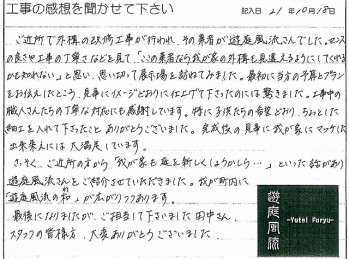 工事の感想を聞かせて下さい
記入日 21年10月18日
ご近所で外構の改修工事が行われ、その業者が遊庭風流さんでした。センス
の良さや工事の丁寧さなどを見て「この業者なら我が家の外構も見違えるようにしてくれる
かも知れない」と思い、思い切って展示場を訪ねてみました。最初に当方の予算とプラン
をお伝えしたところ、見事にイメージどおりに仕上げて下さったのには驚きました。工事中の
職人さんたちの丁寧な対応にも感謝しています。特に子供たちの希望どおり、ちょっとした
細工を入れて下さったこと ありがとうございました。完成後の見事に我が家にマッチした
出来栄えには大満足しています。
さっそく、ご近所の方から「我が家も庭を新しくしようかしら…」といった話があり
遊庭風流さんをご紹介させていただきました。我が町内に
「遊庭風流の和」が広がりつつあります。
最後になりましたが、ご担当して下さいました田中さん、
スタッフの皆様方、大変ありがとうございました。
遊庭風流
-Yutei Furyu-